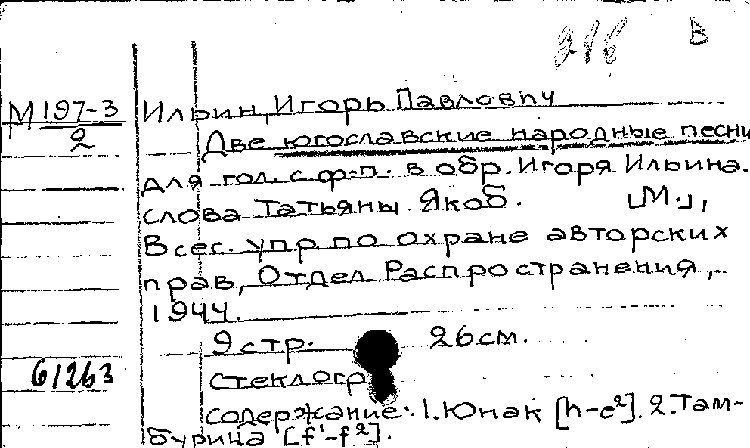 В
М 197-3
2
Ильин, Игорь Павлович
Две югославские народные песни
для гол. с ф-п. в обр. Игоря Ильина.
слова Татьяны Якоб. [М.],
Всес. упр по охране авторских
прав, Отдел Распространения,
1944.
9 стр. 26 см.
61263
стеклогр
содержание: 1. Юнак [h-e²]. 2. Там-
бурица [f¹-f²].